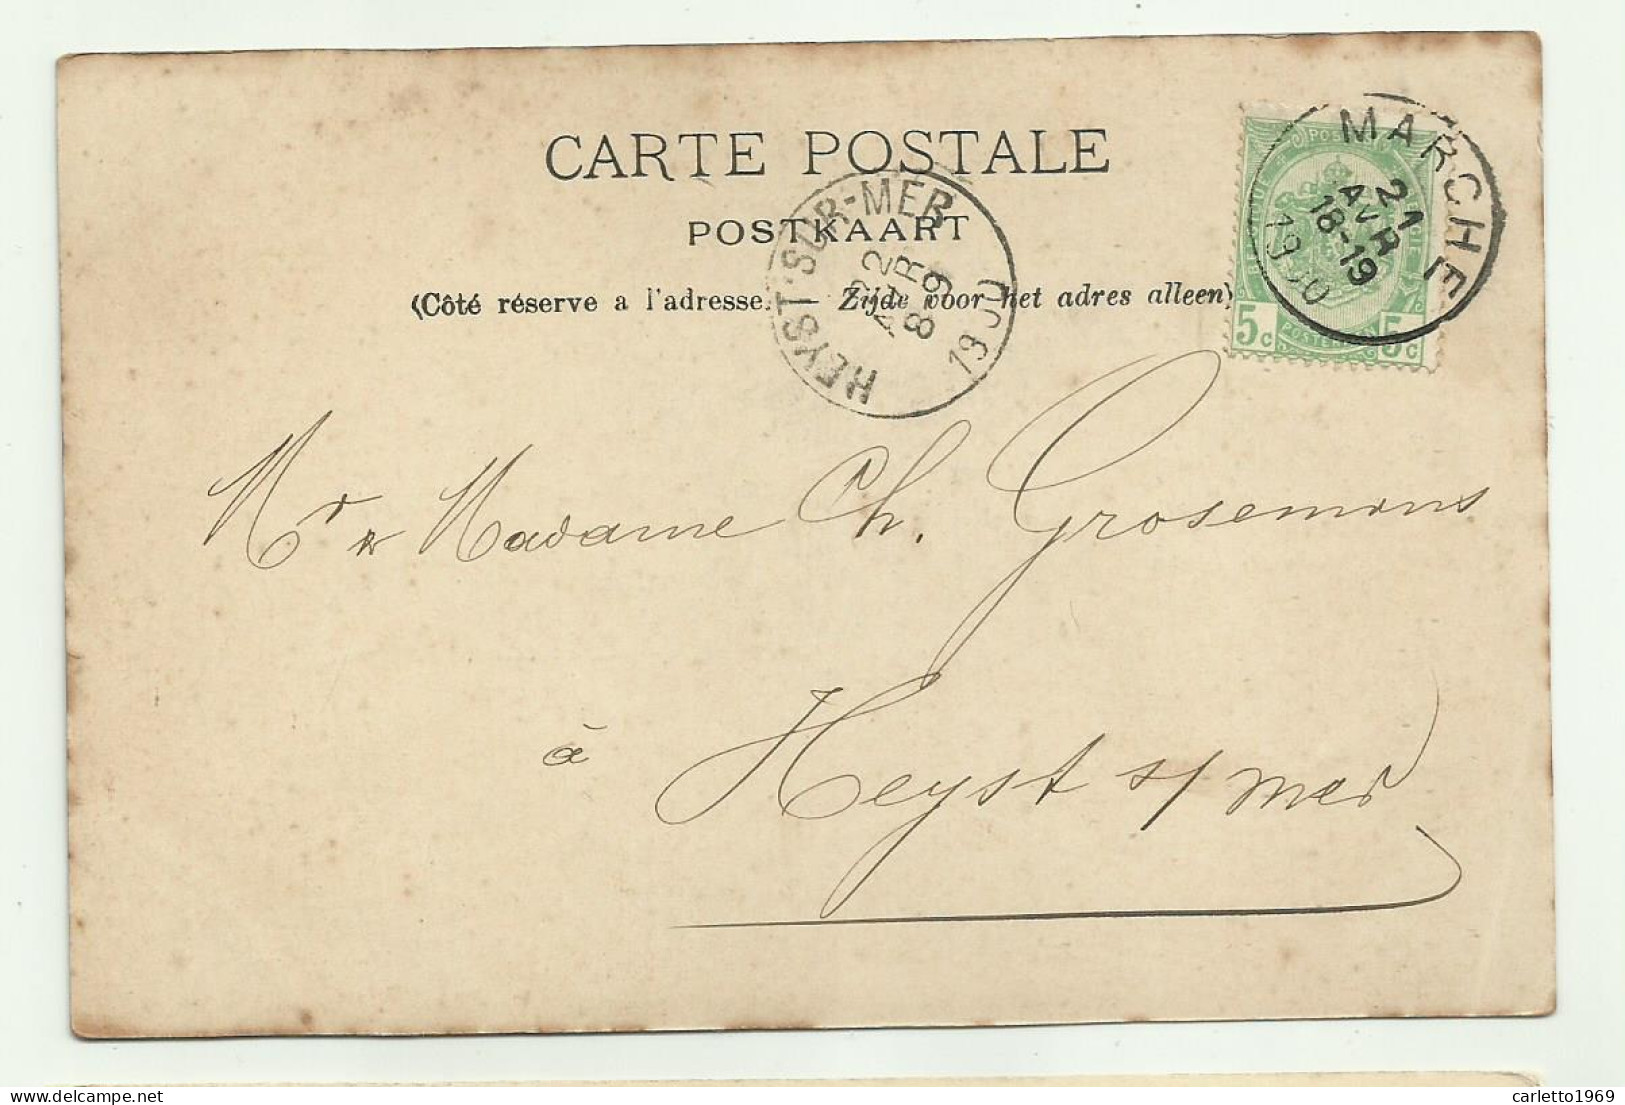 CARTE POSTALE
POSTKAART
(Côté réserve a l'adresse. — Zijde voor het adres alleen)
MARCHE
21
AVR
18-19
1900
HEYST-SUR-MER
22
AVR
8-9
1900
5c 5c
Mr & Madame Ch. Grosemans
à Heyst s/mer
carletto1969